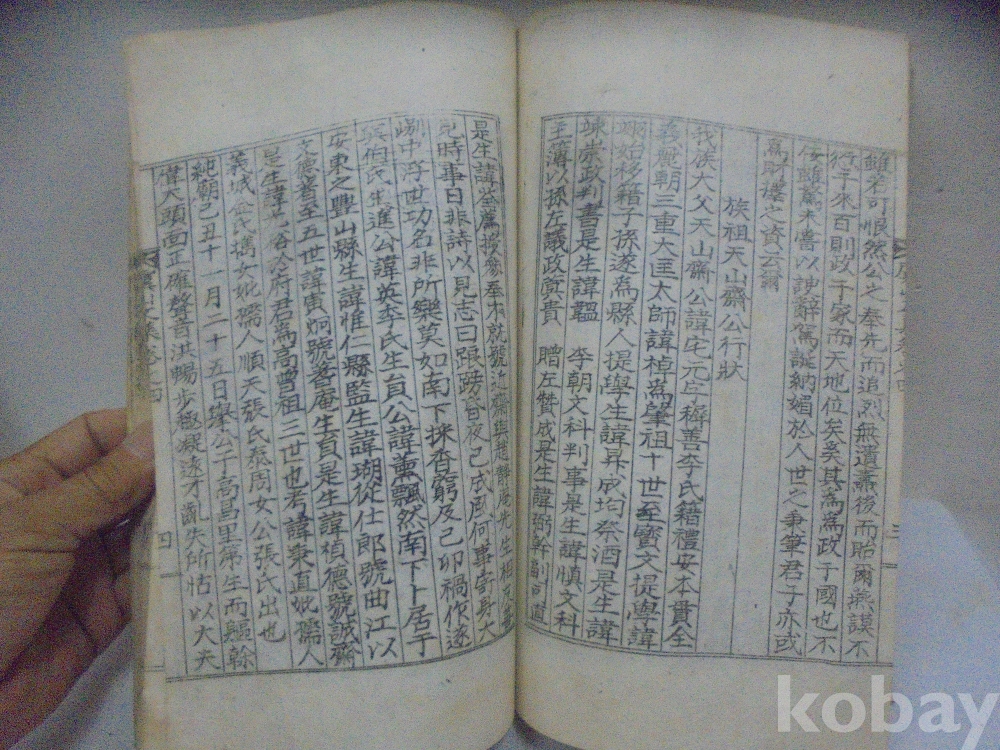 雖若可恨然公之奉先而追烈無遺蕭後而貽爾燕謨不
行于來百則政于家而天地位矣奚其爲爲政于國也不
佞雖駑未嘗以諛辭駕誕納媚於人世之秉筆君子亦或
爲財擇之資云爾
族祖天山齋公行狀
我族大父天山齋公諱宅元字穉善李氏籍禮安本貫全
義麗朝三重大匡太師諱棹爲肇祖十世至寶文提學諱
翊始移籍子孫遂爲縣人提學生諱昇成均祭酒是生諱
竦崇政判書是生諱韞 李朝文科判事是生諱愼文科
主簿以孫左議政質貴 贈左贊成是生諱弼幹副司直
是生諱荃薦授參奉不就號近齋與趙靜庵先生相友善
見時事日非詩以見志曰踉蹡昏夜已成風何事寄身大
崩中浮世功名非所樂莫如南下採香窮及己卯禍作遂
與伯氏生進公諱英季氏生員公諱薰飄然南下卜居于
安東之豐山縣生諱惟仁縣監生諱瑚從仕郎號曲江以
文德著至五世諱寅炯號菴庵生員是生諱楨德號誠齋
是生諱
府君爲高曾祖三世也考諱秉直妣孺人
義城金氏㩦女妣孺人順天張氏泰周女公張氏出也
純朝己丑十一月二十五日擧公于高昌里第生而軀幹
偉大頭面正確聲音洪暢步趨凝遠才齔失所怙以大夫
四
三